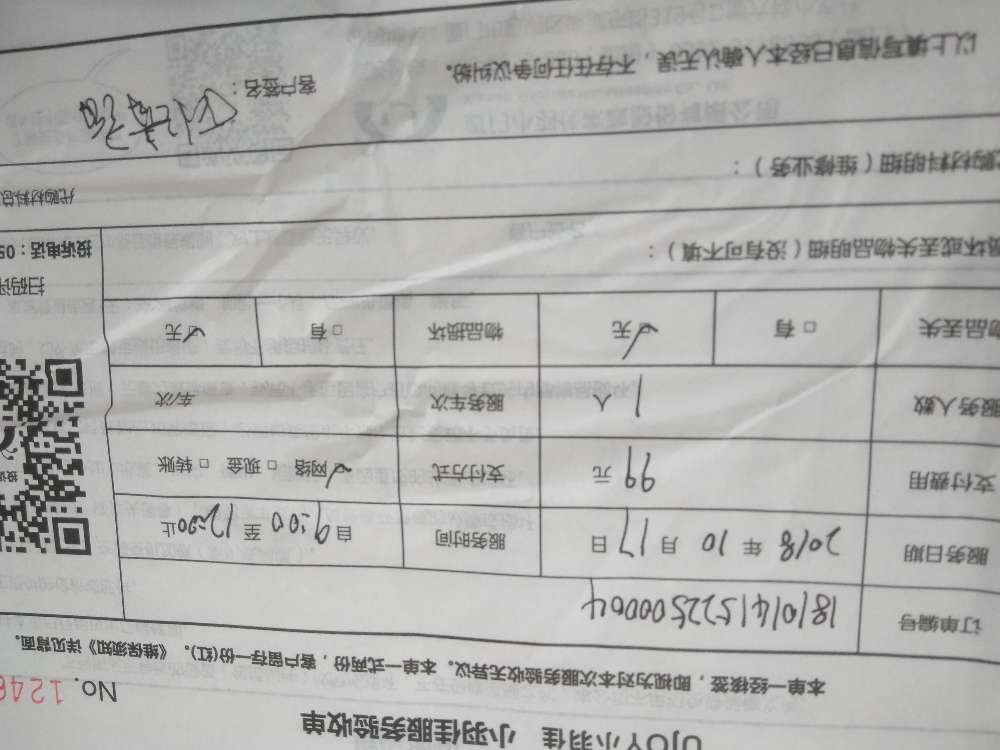 UJOY小羽佳 小羽佳服务验收单
No. 1246
本单一经核签，即视为对本次服务验收无异议。本单一式两份，客户留存一份(红)。《维保须知》详见背面。
订单编号 1810141522500004
服务日期 2018 年 10 月 17 日 服务时间 自 9:00 至 12:00 止
支付费用 99 元 支付方式 ☑ 网络 □ 现金 □ 转账
服务人数 1 人 服务车次 车/次
物品丢失 □ 有 ☑ 无 物品损坏 □ 有 ☑ 无
扫码评
投诉电话：059
损坏或丢失物品明细（没有可不填）：
代购材料明细（维修业务）：
代购材料总
以上填写信息已经本人确认无误，不存在任何争议纠纷。
客户签名：